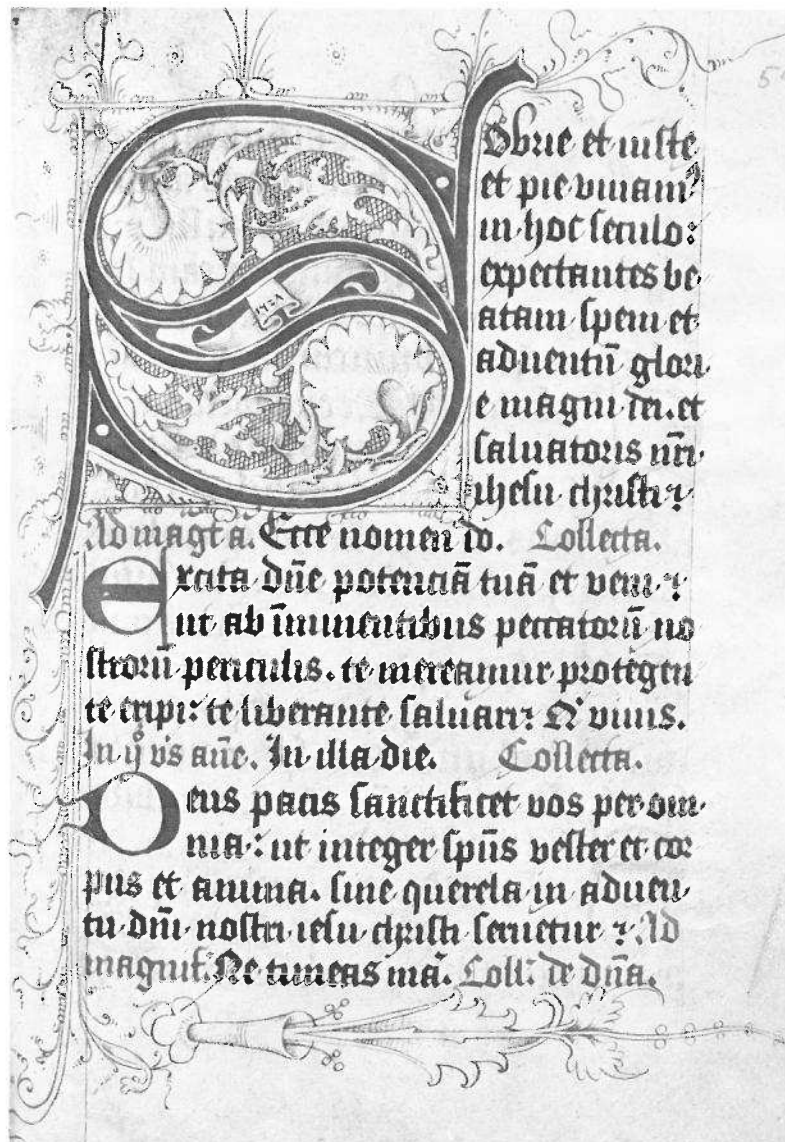 Sobrie et iuste
et pie viuam⁹
in hoc seculo:
expectantes be-
atam spem et
aduentū glori-
e magni dei. et
saluatoris nr̄i
ihesu christi
Ad magt ā. Ecce nomen do. Collecta.
Excita dn̄e potenciā tuā et veni
ut ab īminentibus peccatorū no
strorū periculis. te mereamur protegen
te eripi: te liberante saluari: Q viuis.
In illa die. Collecta.
Deus pacis sanctificet vos per om-
nia: ut integer spūs vester et cor
pus et anima. sine querela in aduen-
tu dn̄i nostri iesu christi seruetur Ad
magnif. Ne timeas ma. Coll: de dn̄a.